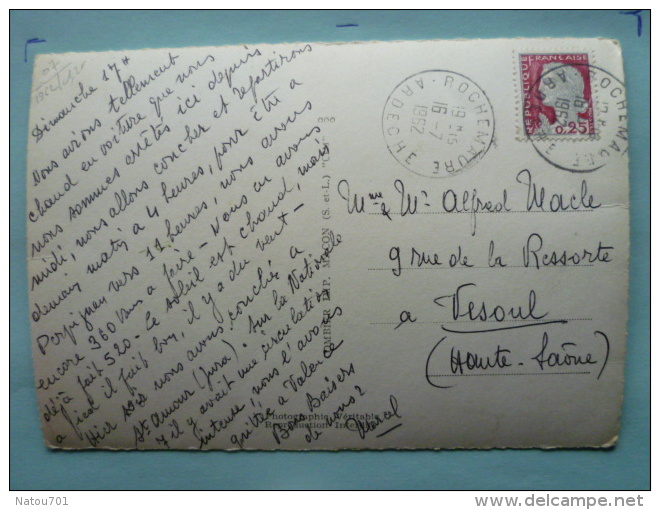 Dimanche 17 H
Nous avions tellement
chaud en voiture que nous
nous sommes arrêtés ici depuis
midi, nous allons coucher et repartirons
demain matin à 4 heures, pour être à
Perpignan vers 11 heures, nous avons
encore 360 kms à faire - nous en avons
déjà fait 520 - le soleil est chaud, mais
à pied il fait bon, il y a du vent -
Hier soir nous avons couché à
St Amour (Jura). Sur la Nationale
7 il y avait une circulation
intense, nous l'avons
quittée à Valence
Bons Baisers
de nous 2
Marcel
COMBIER IMP. MACON (S.-et-L.) "C
Photographie Véritable
Reproduction Interdite
ROCHEMAURE
19 H 15
16 -7
1962
ARDECHE
REPUBLIQUE FRANÇAISE
0,25
ROCHEMAURE
Mme & Mr Alfred Macle
9 rue de la Ressorte
à Vesoul
(Haute-Saône)
Natou701
www.delcampe.net